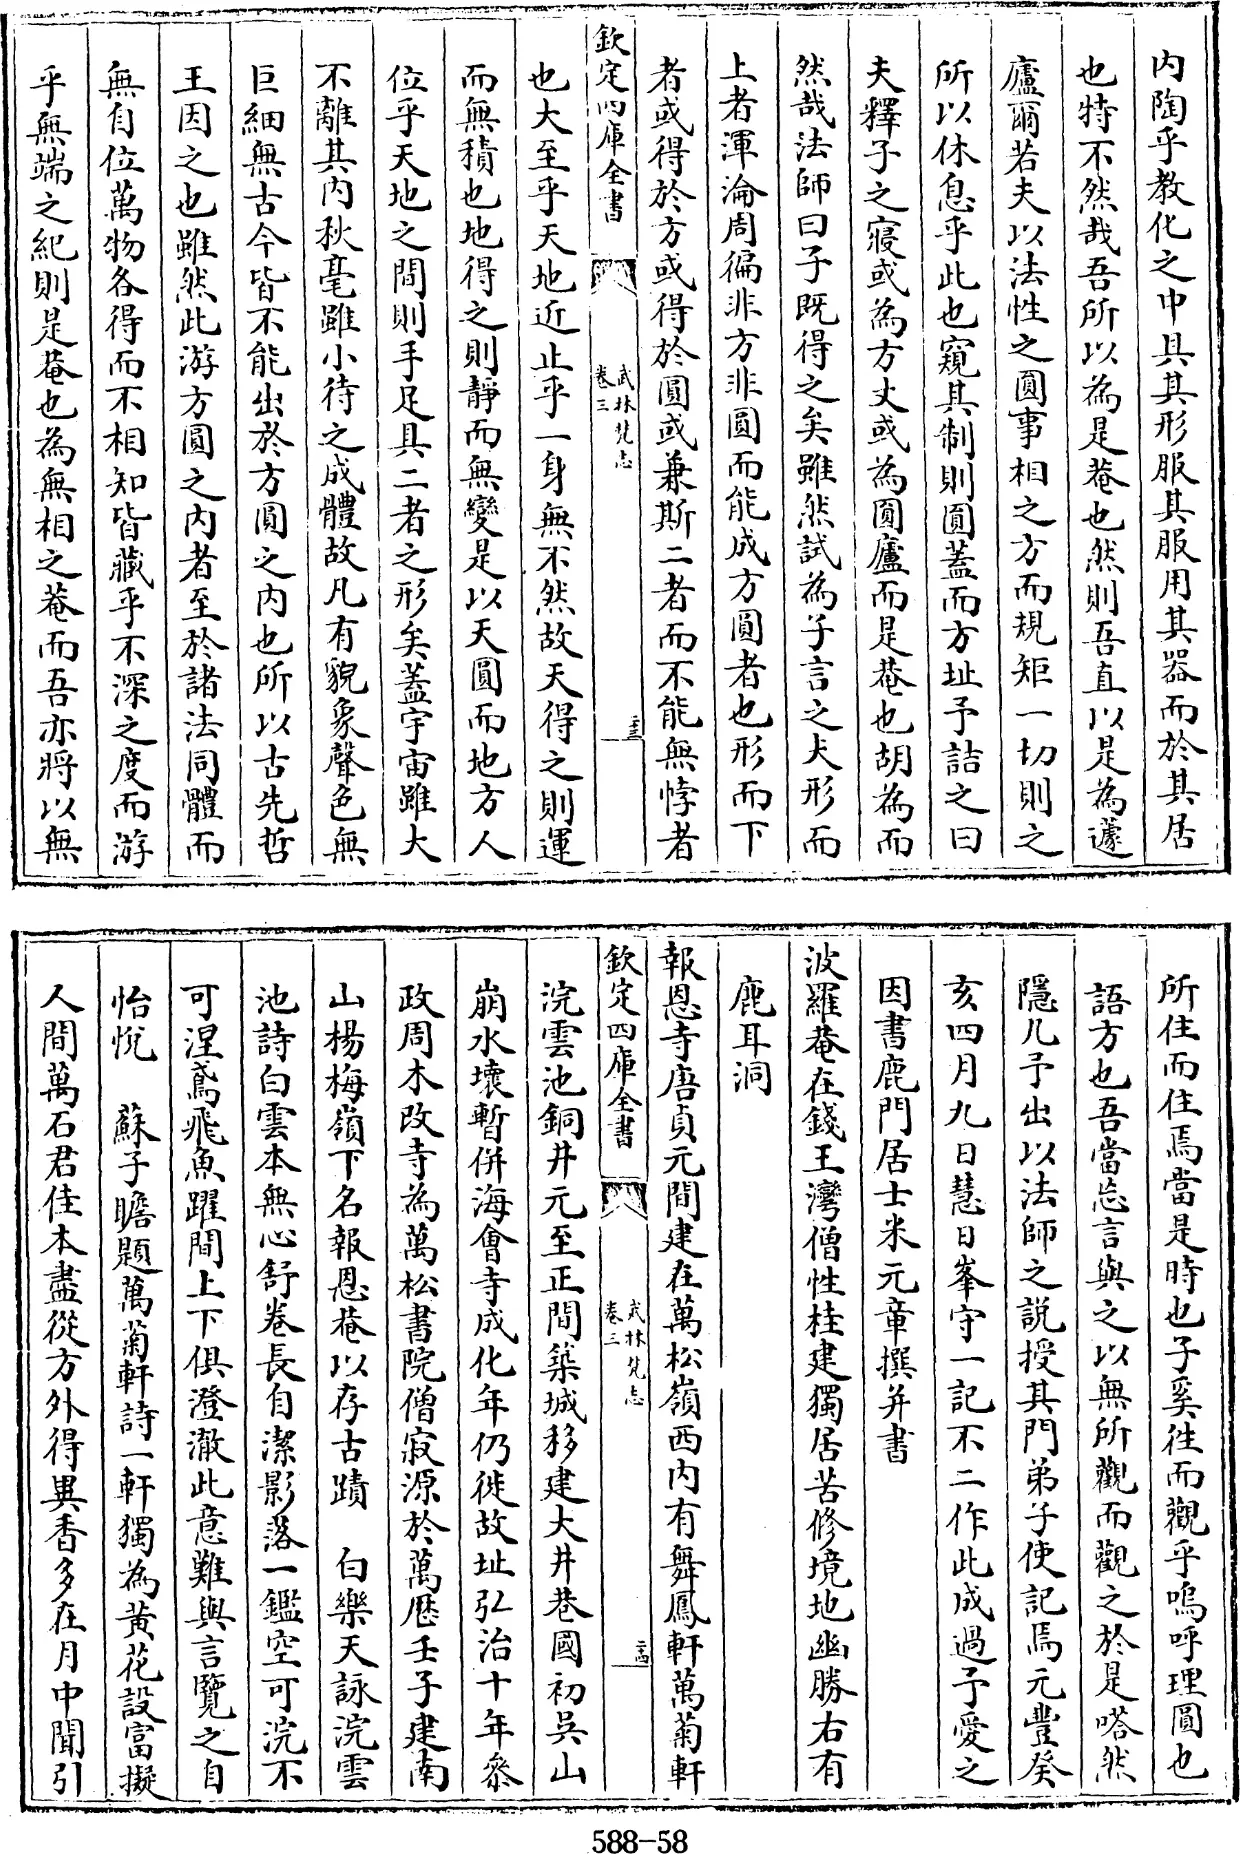 内陶乎教化之中具其形服其服用其器而於其居
也特不然哉吾所以為是菴也然則吾直以是為蘧
廬爾若夫以法性之圓事相之方而規矩一切則之
所以休息乎此也窺其制則圓蓋而方址予詰之曰
夫釋子之寢或為方丈或為圓廬而是菴也胡為而
然哉法師曰子既得之矣雖然試為子言之夫形而
上者渾淪周徧非方非圓而能成方圓者也形而下
者或得於方或得於圓或兼斯二者而不能無悖者
欽定四庫全書
武林梵志
卷三
二十三
也大至乎天地近止乎一身無不然故天得之則運
而無積也地得之則靜而無變是以天圓而地方人
位乎天地之間則手足具二者之形矣蓋宇宙雖大
不離其内秋毫雖小待之成體故凡有貌象聲色無
巨細無古今皆不能出於方圓之内也所以古先哲
王因之也雖然此游方圓之内者至於諸法同體而
無自位萬物各得而不相知皆藏乎不深之度而游
乎無端之紀則是菴也為無相之菴而吾亦將以無
所住而住焉當是時也子奚徃而觀乎嗚呼理圓也
語方也吾當忘言與之以無所觀而觀之於是嗒然
隱几予出以法師之說授其門弟子使記焉元豐癸
亥四月九日慧日峯守一記不二作此成過予愛之
因書鹿門居士米元章撰并書
波羅菴在錢王灣僧性桂建獨居苦修境地幽勝右有
鹿耳洞
報恩寺唐貞元間建在萬松嶺西内有舞鳳軒萬菊軒
欽定四庫全書
武林梵志
卷三
二十四
浣雲池銅井元至正間築城移建大井巷國初吳山
崩水壞暫併海會寺成化年仍徙故址弘治十年叅
政周木改寺為萬松書院僧寂源於萬歴壬子建南
山楊梅嶺下名報恩菴以存古蹟　白樂天詠浣雲
池詩白雲本無心舒卷長自潔影落一鑑空可浣不
可湼鳶飛魚躍間上下俱澄澈此意難與言覽之自
怡悅　蘇子瞻題萬菊軒詩一軒獨為黃花設富擬
人間萬石君佳本盡從方外得異香多在月中聞引
588-58